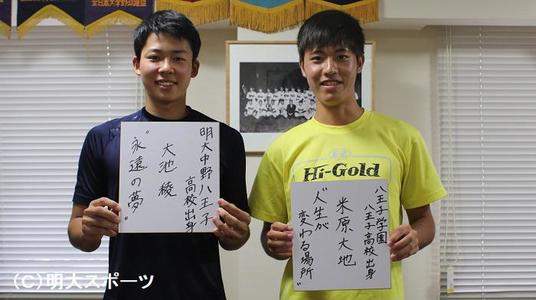 全日本大学野球連盟
明大中野八王子
高校出身
大池 綾
“永遠の夢”
Hi-Gold
八王子学園
八王子高校出身
米原大地
“人生が
変わる場所”
(C)明大スポーツ